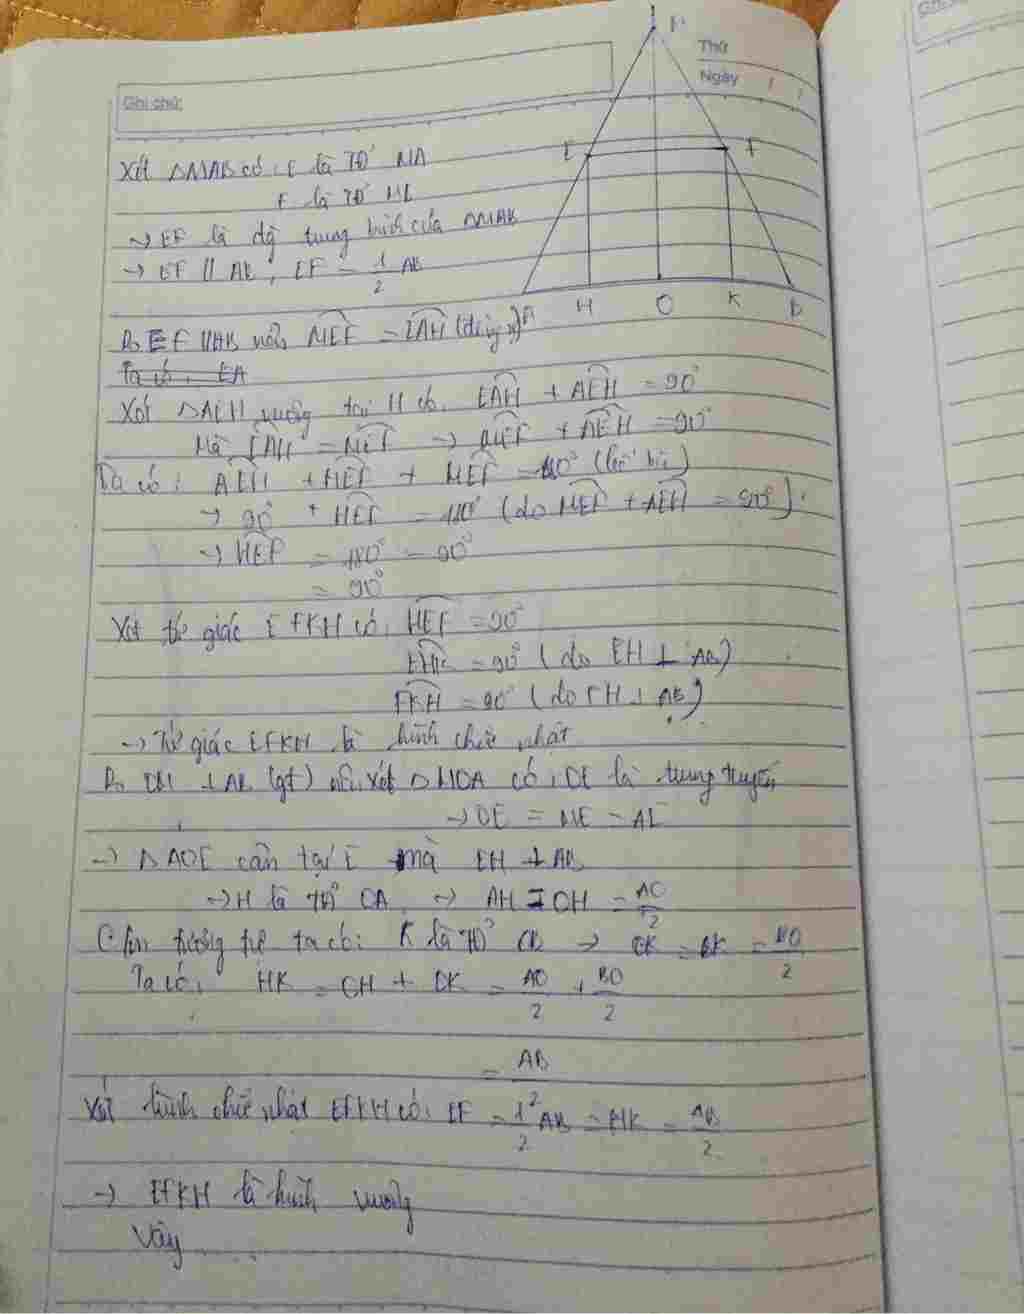 Ghi chú:
Thứ
Ngày
Xét ΔMAB có: E là TĐ MA
F là TĐ
→ EF là đg trung bình của ΔMAB
→ EF // AB, EF = 1/2 AB
H O K B
Do EF // AB nên MEF = EAH (đồng vị)
Ta có: EA
Xét ΔAEH vuông tại H có: EAH + AEH = 90°
Mà EAH = MEF → MEF + AEH = 90°
Ta có: AEH + HEF + MEF = 180° (kề bù)
→ 90° + HEF = 180° (do MEF + AEH = 90°)
→ HEF = 180° - 90°
= 90°
Xét tứ giác EFKH có: HEF = 90°
EHK = 90° (do EH ⊥ AB)
FKH = 90° (do FH ⊥ AB)
→ Tứ giác EFKH là hình chữ nhật
Do OM ⊥ AB (gt) nên xét ΔMOA có: OE là trung tuyến
→ OE = ME = AE
→ ΔAOE cân tại E mà EH ⊥ AB
→ H là TĐ OA → AH = OH = AO/2
tương tự ta có: K là TĐ OB → OK = BK = BO/2
Ta có: HK = OH + OK = AO/2 + BO/2
= AB/2
Xét hình chữ nhật EFKH có: EF = 1/2 AB = HK = AB/2
→ EFKH là hình vuông
Vậy